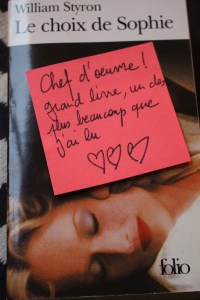 William Styron
Le choix de Sophie
Chef d'oeuvre!
grand livre, un des
plus beaucoup que
j'ai lu
folio